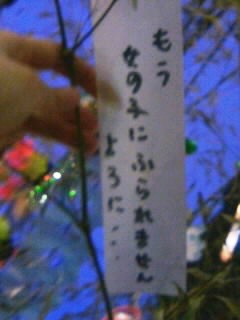 もう
女の子にふられません
ように...